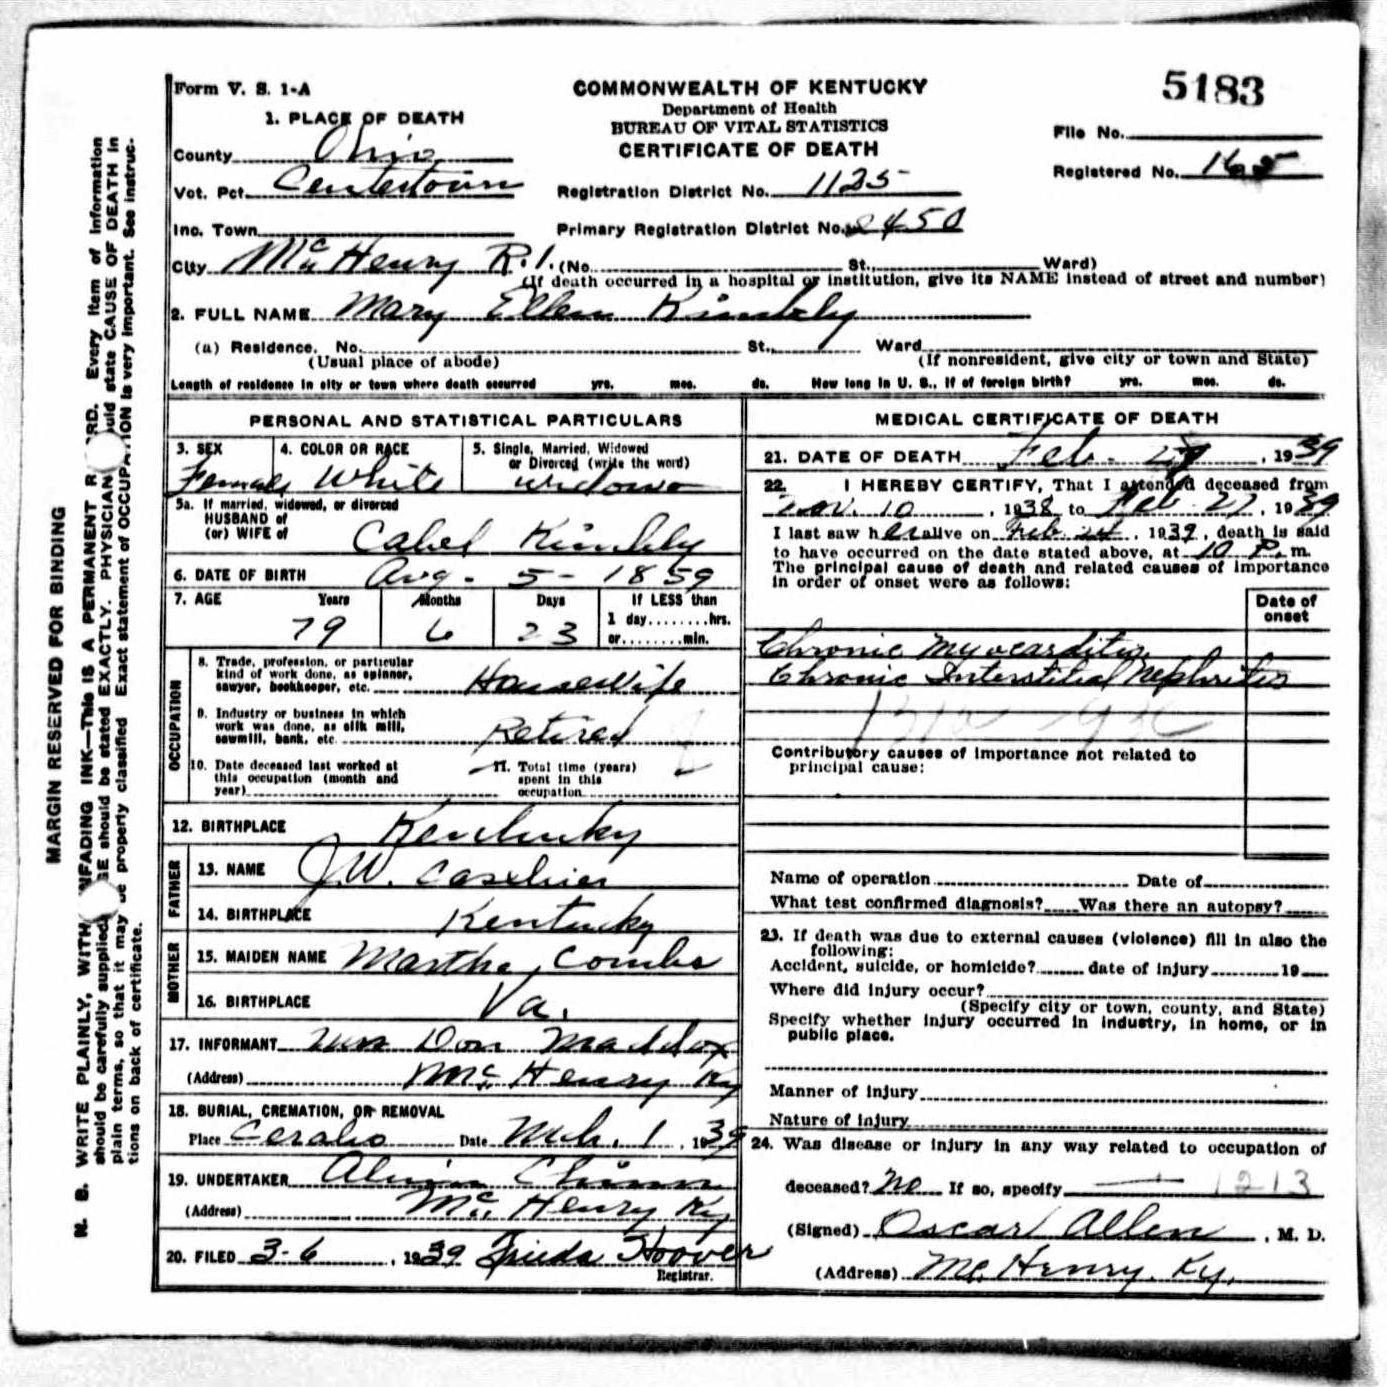 Form V. S. 1-A
COMMONWEALTH OF KENTUCKY
Department of Health
BUREAU OF VITAL STATISTICS
CERTIFICATE OF DEATH
5183
File No.
Registered No. 165
1. PLACE OF DEATH
County Ohio
Vot. Pct. Centertown
Registration District No. 1125
Inc. Town
Primary Registration District No. 2450
City McHenry R.1. (No. St., Ward)
(If death occurred in a hospital or institution, give its NAME instead of street and number)
2. FULL NAME Mary Ellen Kimbly
(a) Residence. No. St., Ward
(Usual place of abode) (If nonresident, give city or town and State)
Length of residence in city or town where death occurred yrs. mos. ds. How long in U. S., if of foreign birth? yrs. mos. ds.
PERSONAL AND STATISTICAL PARTICULARS
3. SEX 4. COLOR OR RACE 5. Single, Married, Widowed
or Divorced (write the word)
Female White widow
5a. If married, widowed, or divorced
HUSBAND of
(or) WIFE of Cabel Kimbly
6. DATE OF BIRTH Aug. 5 - 1859
7. AGE Years Months Days If LESS than
1 day........hrs.
or........min.
79 6 23
OCCUPATION
8. Trade, profession, or particular
kind of work done, as spinner,
sawyer, bookkeeper, etc. Housewife
9. Industry or business in which
work was done, as silk mill,
sawmill, bank, etc. Retired
10. Date deceased last worked at
this occupation (month and
year)
11. Total time (years)
spent in this
occupation
12. BIRTHPLACE Kentucky
FATHER
13. NAME J.W.
14. BIRTHPLACE Kentucky
MOTHER
15. MAIDEN NAME Martha Combs
16. BIRTHPLACE Va.
17. INFORMANT Mrs Don Maddox
(Address) McHenry Ky
18. BURIAL, CREMATION, OR REMOVAL
Place Ceralvo Date Mch. 1, 1939
19. UNDERTAKER Alvin Chinn
(Address) McHenry Ky
20. FILED 3-6, 1939 Frieda Hoover
Registrar.
MEDICAL CERTIFICATE OF DEATH
21. DATE OF DEATH Feb. , 1939
22. I HEREBY CERTIFY, That I attended deceased from
Nov. 10, 1938 to Feb. 27, 1939
I last saw her alive on Feb 24, 1939, death is said
to have occurred on the date stated above, at 10 P. m.
The principal cause of death and related causes of importance
in order of onset were as follows:
Date of
onset
Chronic Myocarditis
Chronic Interstitial Nephritis
Contributory causes of importance not related to
principal cause:
Name of operation Date of
What test confirmed diagnosis? Was there an autopsy?
23. If death was due to external causes (violence) fill in also the
following:
Accident, suicide, or homicide? date of injury 19
Where did injury occur?
(Specify city or town, county, and State)
Specify whether injury occurred in industry, in home, or in
public place.
Manner of injury
Nature of injury
24. Was disease or injury in any way related to occupation of
deceased? No If so, specify 1213
(Signed) Oscar Allen, M. D.
(Address) Mc.Henry. Ky.
MARGIN RESERVED FOR BINDING
N. B. WRITE PLAINLY, WITH NFADING INK—This IS A PERMANENT R RD. Every item of information
should be carefully supplied. GE should be stated EXACTLY. PHYSICIAN uld state CAUSE OF DEATH in
plain terms, so that it may be properly classified. Exact statement of OCCUPATION is very important. See instruc-
tions on back of certificate.